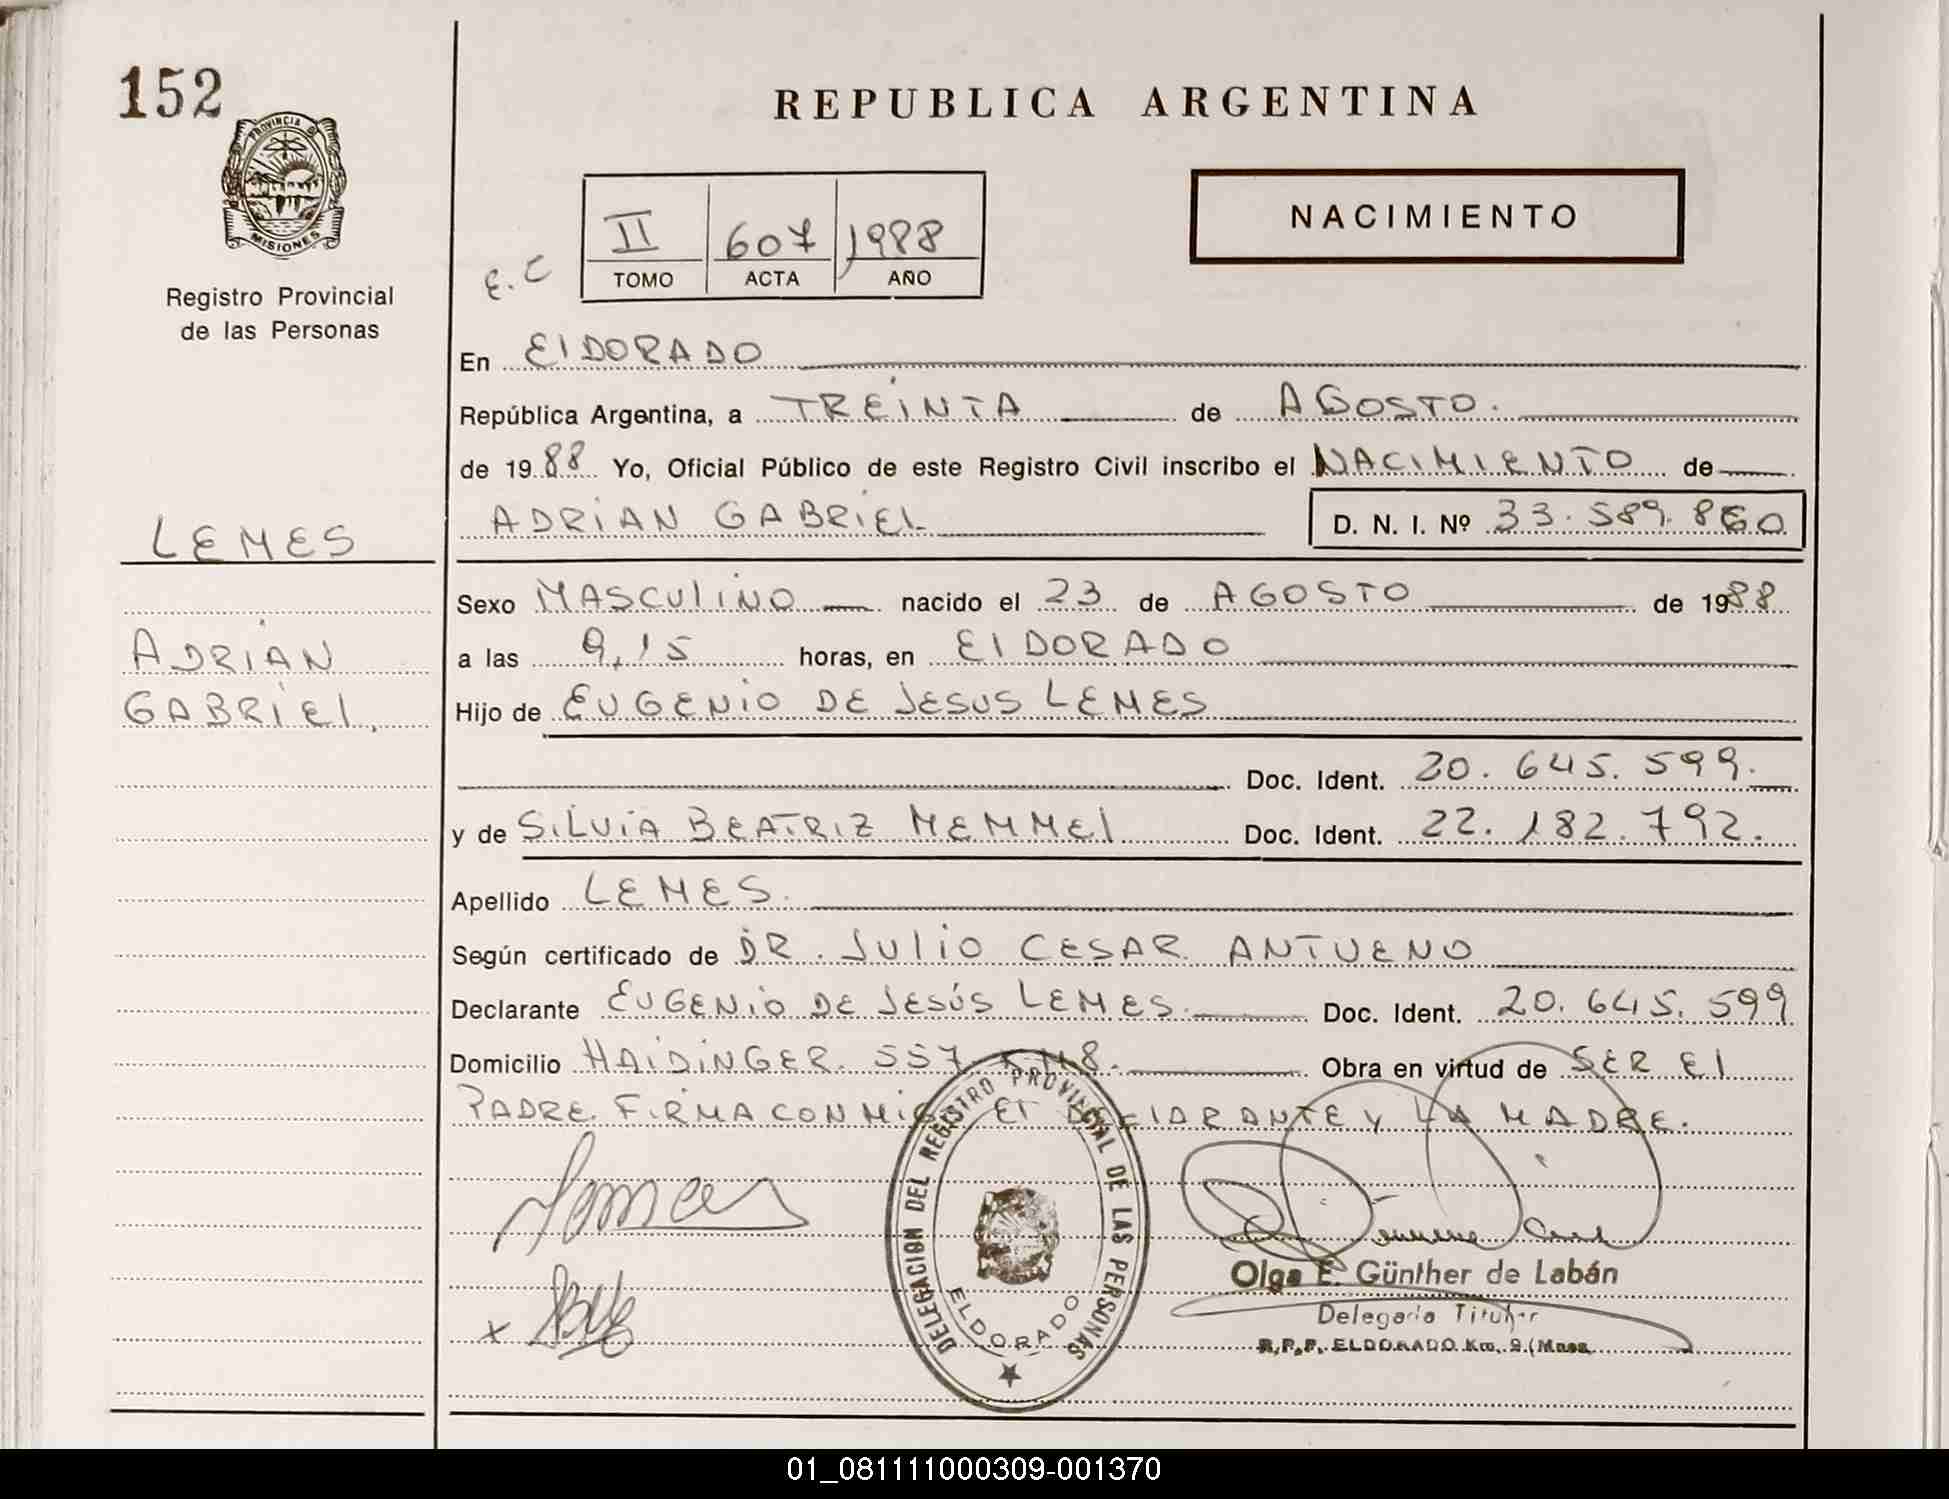 152
REPUBLICA ARGENTINA
PROVINCIA D
MISIONES
Registro Provincial
de las Personas
II 607 1988
TOMO ACTA AÑO
NACIMIENTO
E.C
En ElDORADO
República Argentina, a TREINTA de AGOSTO.
de 1988 Yo, Oficial Público de este Registro Civil inscribo el NACIMIENTO de
ADRIAN GABRIEL D. N. I. Nº 33.589.860
LEMES
ADRIAN
GABRIEl,
Sexo MASCULINO nacido el 23 de AGOSTO de 1988
a las 9,15 horas, en ElDORADO
Hijo de EUGENIO DE JESUS LEMES
Doc. Ident. 20.645.599.
y de SILVIA BEATRIZ MEMMEl Doc. Ident. 22.182.792.
Apellido LEMES.
Según certificado de DR. JULIO CESAR ANTUENO
Declarante EUGENIO DE JESÚS LEMES. Doc. Ident. 20.645.599
Domicilio HAIDINGER 557 KM8. Obra en virtud de SER El
PADRE. FIRMA CONMIGO El DEClARANTE Y LA MADRE.
DELEGACION DEL REGISTRO PROVINCIAL DE LAS PERSONAS
ELDORADO
Olga E. Günther de Labán
Delegada Titular
R.P.P. ELDORADO Km. 9 (Mnes
01_081111000309-001370